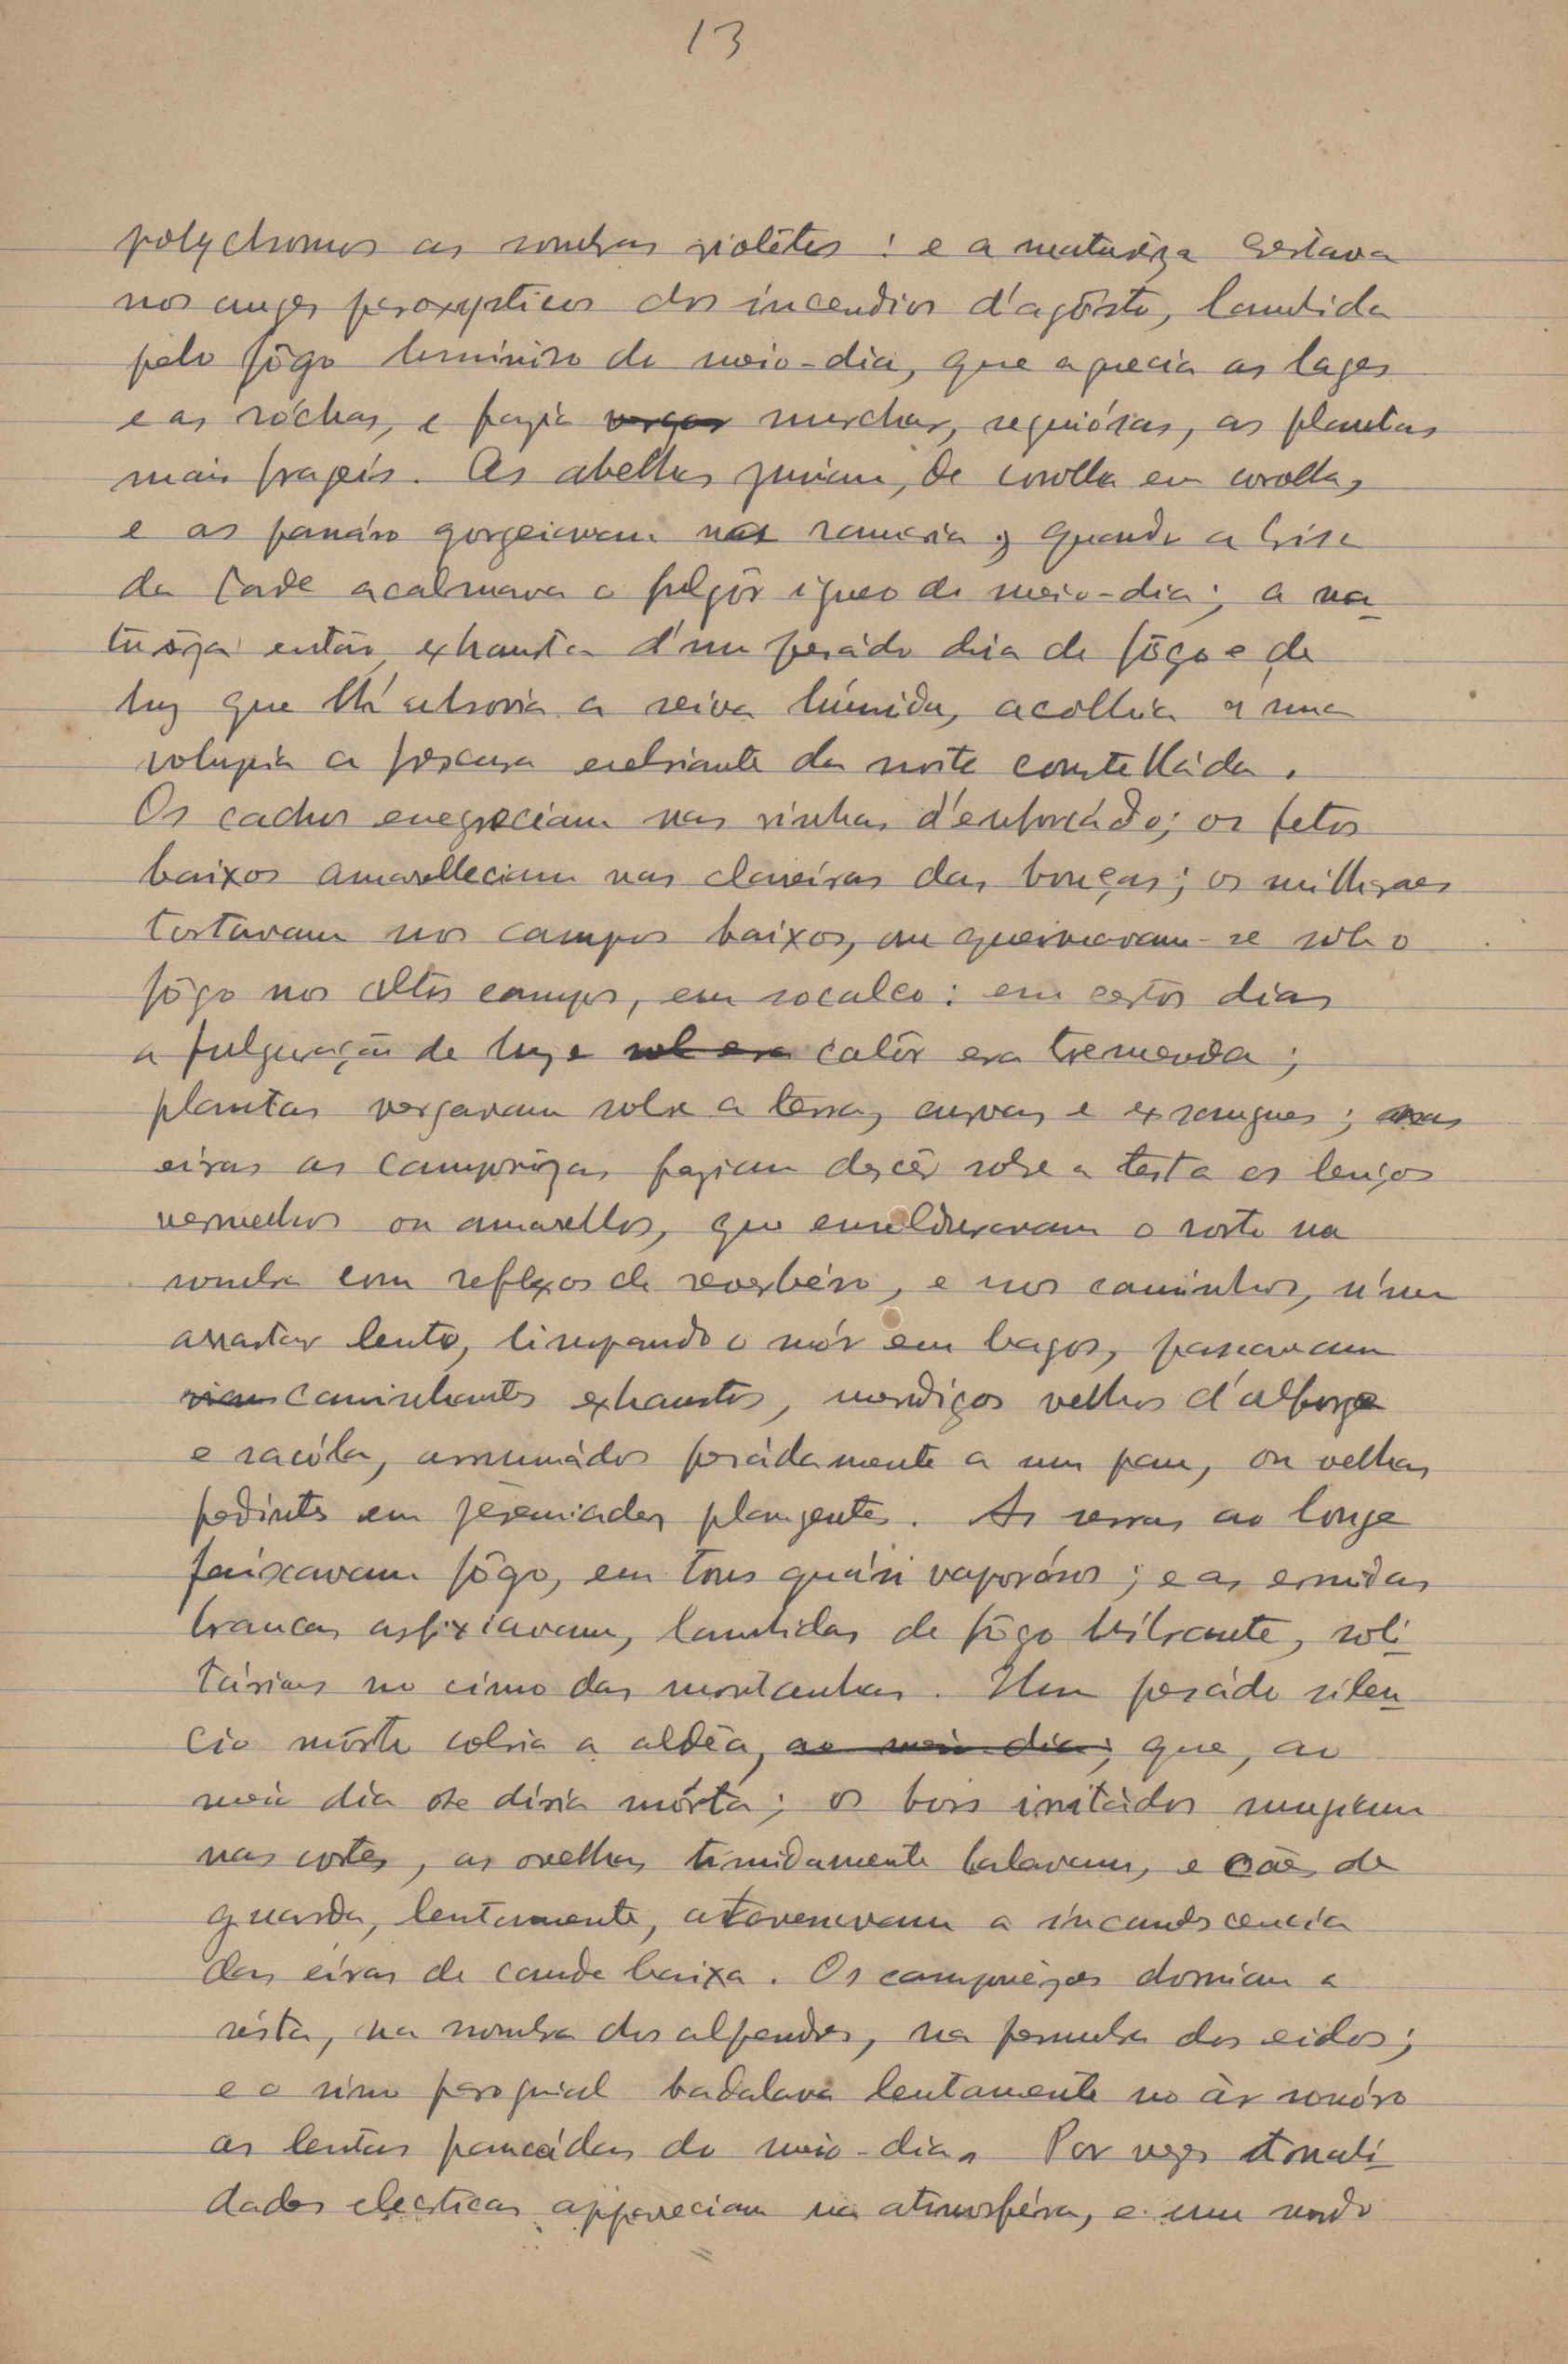 13
polychromos as sombras violêtas : e a naturêza estava
nos auges paroxysticos dos incendios d'agôsto, lambida
pelo fôgo luminôso do meio-dia, que aquecia as lages
e as róchas, e fazia vergar murchar, sequiósas, as plantas
mais frageis. As abelhas zuniam, de corolla em corolla,
e os passáros gorgeiavam na ramaria, quando a brisa
da tarde acalmava o fulgôr igneo do meio-dia; a na-
turêza então, exhausta d'um pesádo dia de fôgo e de
luz que lh'absorvia a seiva húmida, acolhia n'uma
volupia a frescura enebriante da noite constelláda.
Os cachos enegreciam nas vinhas d'enforcádo; os fetos
baixos amarelleciam nas clareiras das bouças; os milharaes
tostavam nos campos baixos, ou queimavam-se sob o
fôgo nos altos campos, em socalco: em certos dias
a fulguração de luz e sol era calôr era tremenda;
plantas vergavam sobre a terra, curvas e exsangues; nas
eiras as camponêzas faziam descêr sobre a testa os lenços
vermelhos ou amarellos, que emolduravam o rosto na
sombra com reflexos de reverbéro, e nos caminhos, n'um
arrastar lento, limpando o suór em bagos, passavam
viam caminhantes exhaustos, mendigos velhos d'alforge
e sacóla, arrumádos pesádamente a um pau, ou velhas
pedintes em jeremiades plangentes. As serras ao longe
faiscavam fôgo, em tons quási vaporósos; e as ermidas
brancas asfixiavam, lambidas de fôgo vibrante, soli-
tárias no cimo das montanhas. Um pesádo silen-
cio môrto cobria a aldêa, ao meio dia; que, ao
meio dia se diria mórta; os bois irritádos mugiam
nas cortes, as ovelhas timidamente balavam, e cães de
guarda, lentamente, atravessavam a incandescencia
das eiras de cauda baixa. Os camponêzes dormiam a
sésta, na sombra dos alpendres, na penumbra dos eidos;
e o sino paroquial badalava lentamente no àr sonóro
as lentas pancádas do meio-dia. Por vezes tonali-
dades electricas appareciam na atmosféra, e um surdo